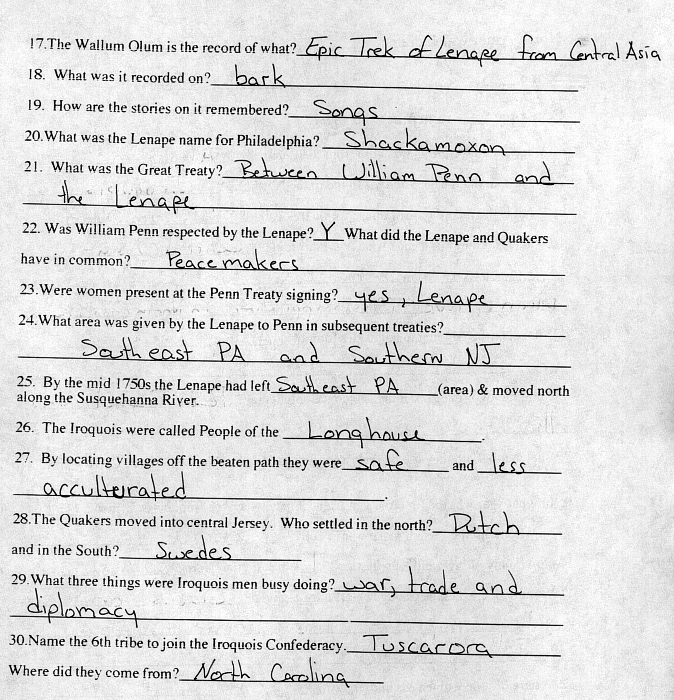 17.The Wallum Olum is the record of what? Epic Trek of Lenape from Central Asia
18. What was it recorded on? bark
19. How are the stories on it remembered? Songs
20.What was the Lenape name for Philadelphia? Shackamoxon
21. What was the Great Treaty? Between William Penn and
the Lenape
22. Was William Penn respected by the Lenape? Y What did the Lenape and Quakers
have in common? Peacemakers
23.Were women present at the Penn Treaty signing? yes, Lenape
24.What area was given by the Lenape to Penn in subsequent treaties?
Southeast PA and Southern NJ
25. By the mid 1750s the Lenape had left Southeast PA (area) & moved north
along the Susquehanna River.
26. The Iroquois were called People of the Longhouse.
27. By locating villages off the beaten path they were safe and less
acculturated.
28.The Quakers moved into central Jersey. Who settled in the north? Dutch
and in the South? Swedes
29.What three things were Iroquois men busy doing? war, trade and
diplomacy
30.Name the 6th tribe to join the Iroquois Confederacy. Tuscarora
Where did they come from? North Carolina